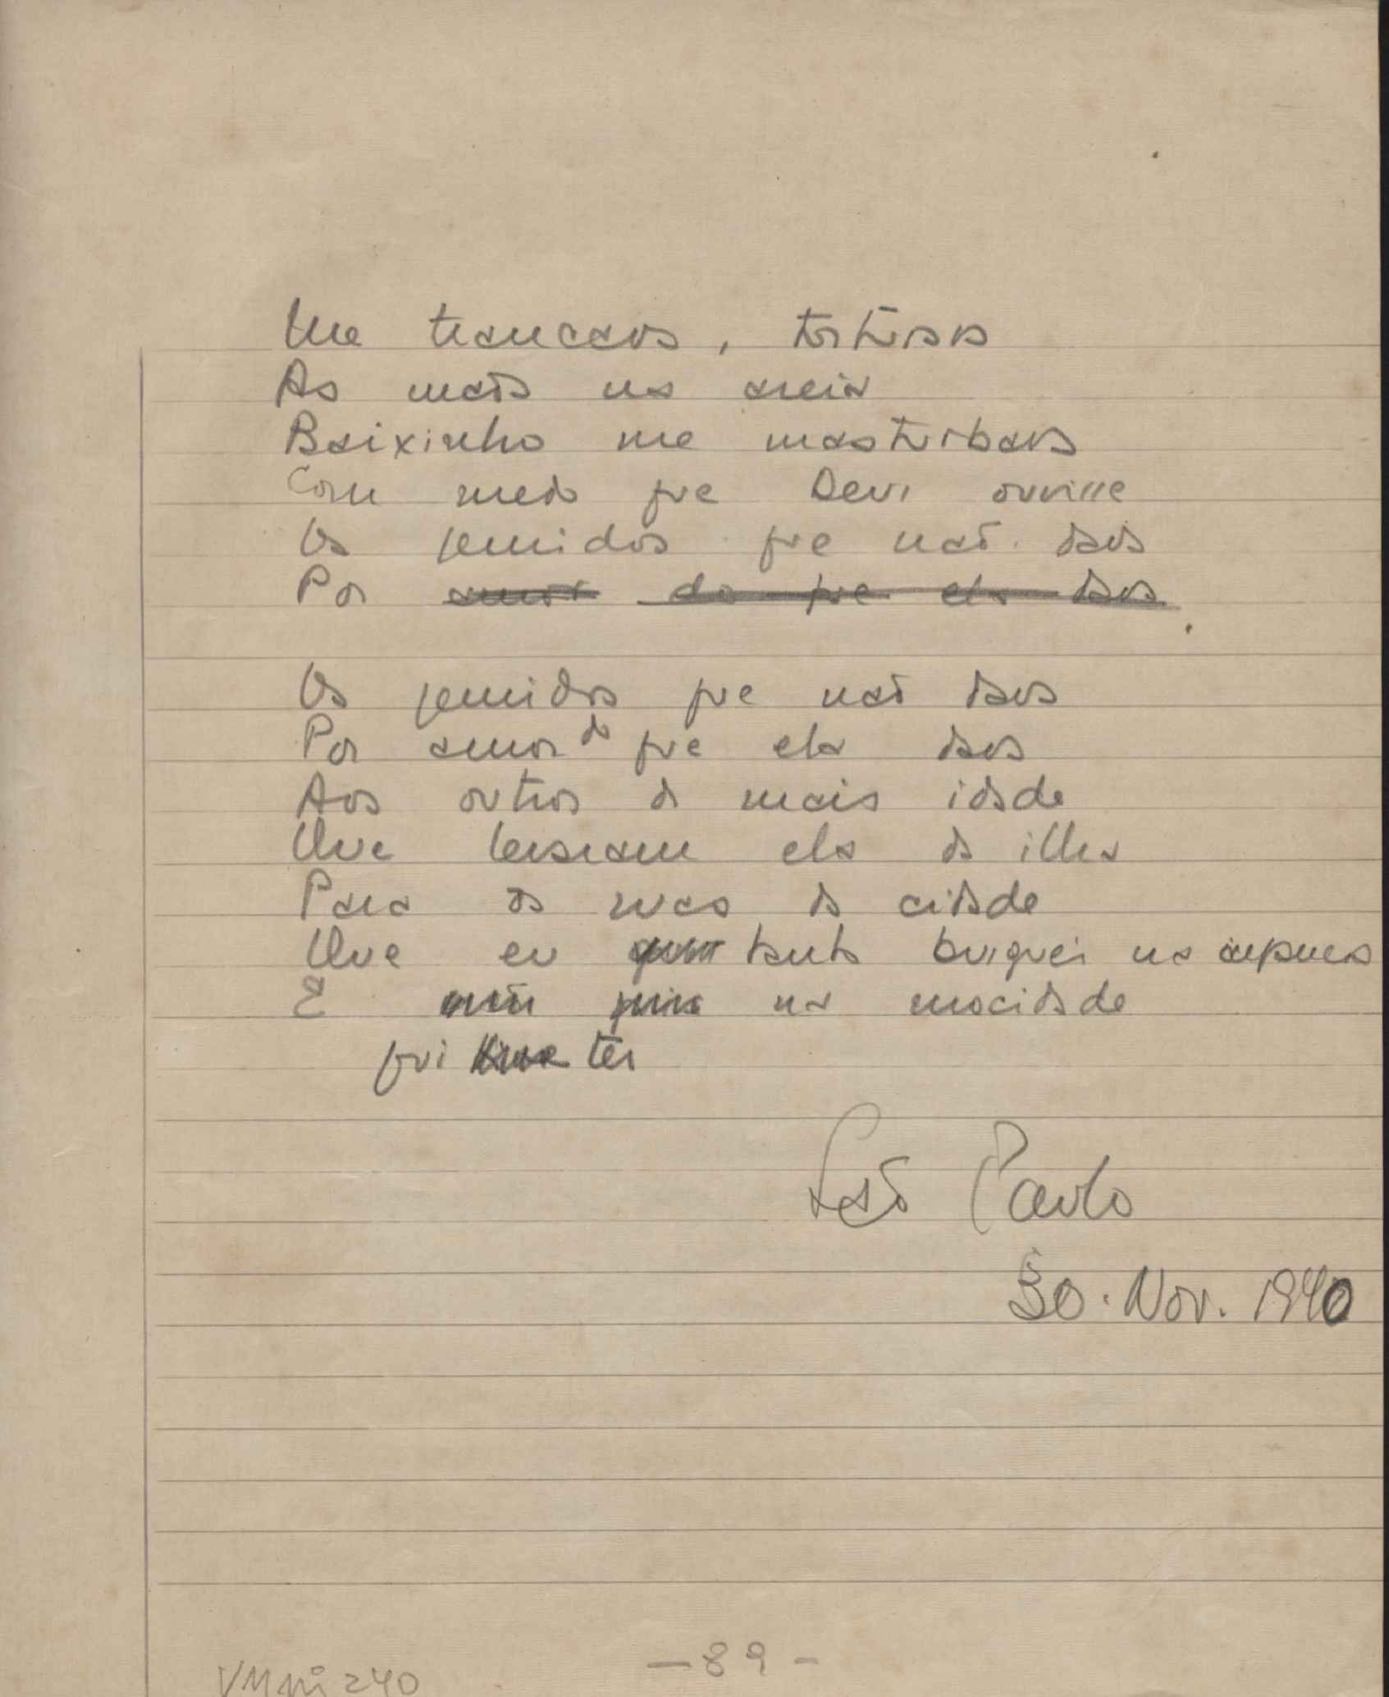 Me trancava,
As mãos na areia
Baixinho me masturbava
Com medo que Deus ouvisse
Os gemidos que não dava
Por amor do que ela dava
Os gemidos que não dava
Por amor do que ela dava
Aos outros de mais idade
Que levaram ela da ilha
Para as ruas da cidade
Que eu tanto briguei na infancia
E na mocidade
fui ter
São Paulo
30. Nov. 1940
— 89 -